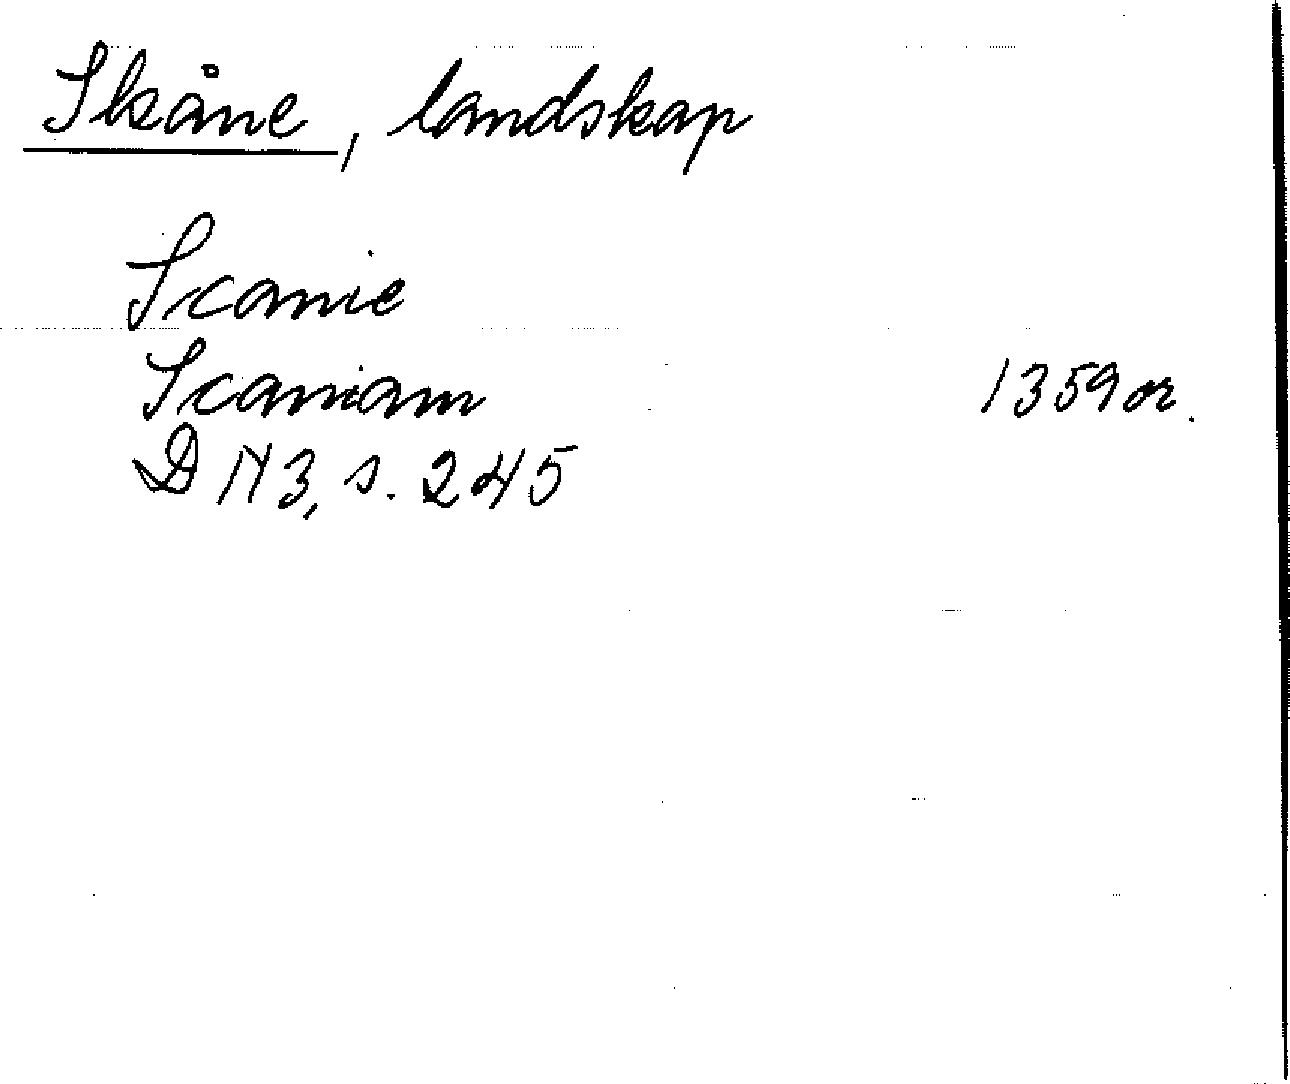 Skåne, landskap
Scanie
Scaniam 1359 or.
DN 3, s. 245